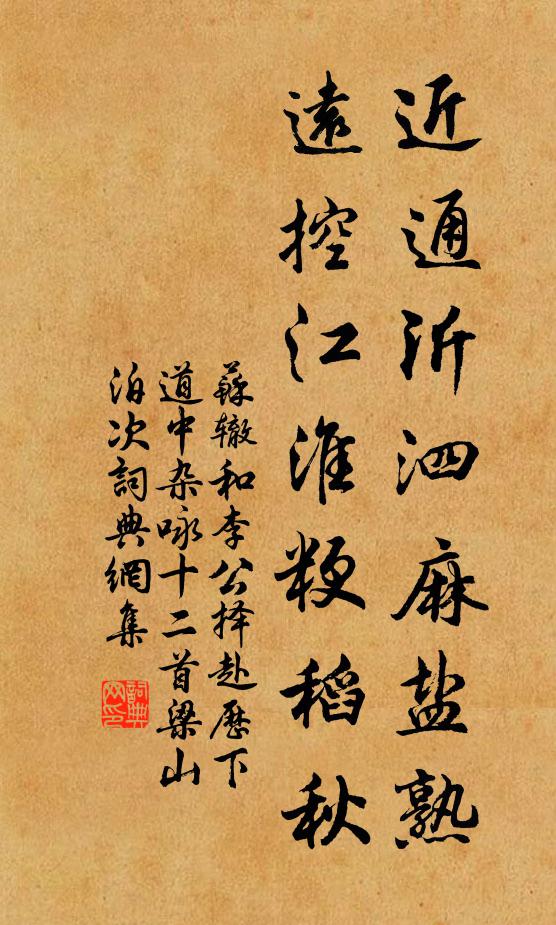 近通沂泗麻盐熟
遠控江淮粳稻秋
蘇辙和李公择赴歷下
道中杂咏十二首梁山
泊次詞典網集
詞典
网印